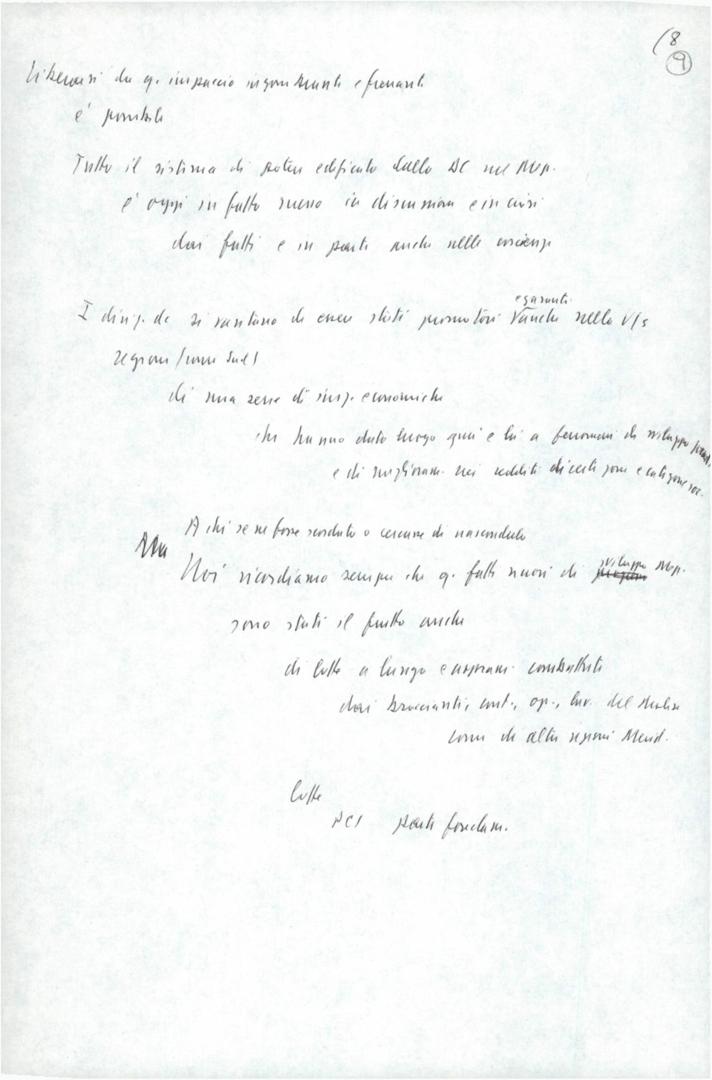 (8
9
Liberarsi da q. impaccio ingombrante e frenante
è possibile
Tutto il sistema di potere edificato dalla DC nel Mezz.
è oggi in fatto messo in discussione e in crisi
dai fatti e in parte anche nelle coscienze
e garanti
I dirig. dc si vantano di essere stati promotori V anche nella Vs
regione (come Sud)
di una serie di insed. economiche
che hanno dato luogo qui e lì a fenomeni di sviluppo
e di miglioram. nei redditi di certe zone e categorie soc.
A chi se ne fosse scordato o cercasse di nasconderlo
Ma
sviluppo
Noi ricordiamo sempre che q. fatti nuovi di Mezz.
sono stati il frutto anche
di lotte a lungo e aspram. combattute
dai braccianti, cont., op., lav. del Molise
come di altre regioni Merid.
lotte
PCI parte fondam.